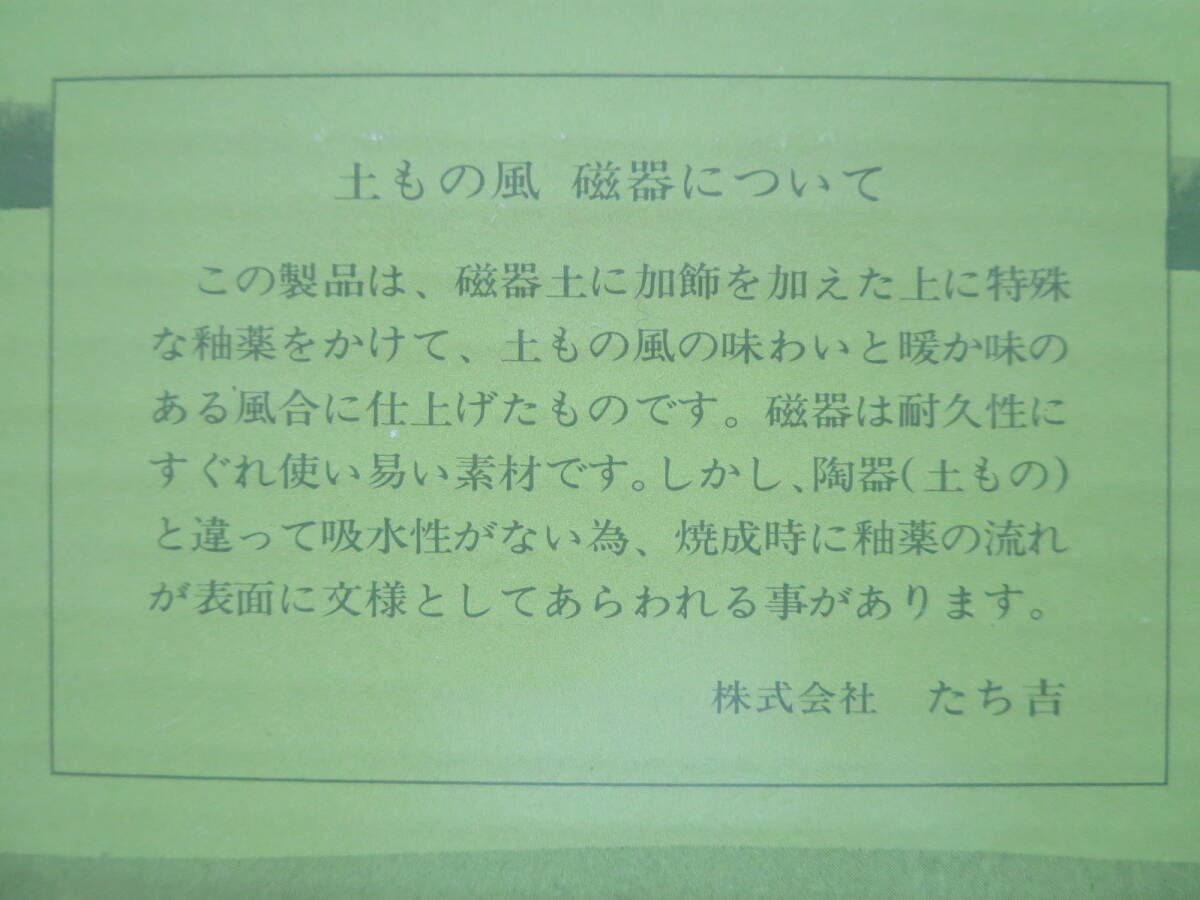 土もの風 磁器について
この製品は、磁器土に加飾を加えた上に特殊
な釉薬をかけて、土もの風の味わいと暖か味の
ある風合に仕上げたものです。磁器は耐久性に
すぐれ使い易い素材です。しかし、陶器(土もの)
と違って吸水性がない為、焼成時に釉薬の流れ
が表面に文様としてあらわれる事があります。
株式会社 たち吉